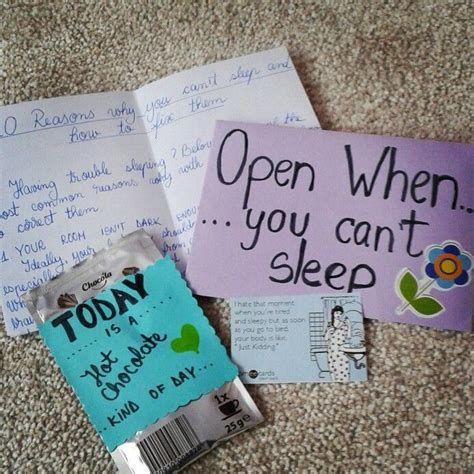 0 Reasons why you can't sleep and
how to fix them
Having trouble sleeping? Below
most common reasons with
to correct them.
1 YOUR ROOM ISN'T DARK ENOU
Ideally, your
Open When...
...you can't
sleep
I hate that moment
when you're tired
and sleepy but as soon
as you go to bed,
your body is like,
"Just Kidding."
cards
Chocola
TODAY
IS A
Hot
Chocolate
...KIND OF DAY...
1x
25g